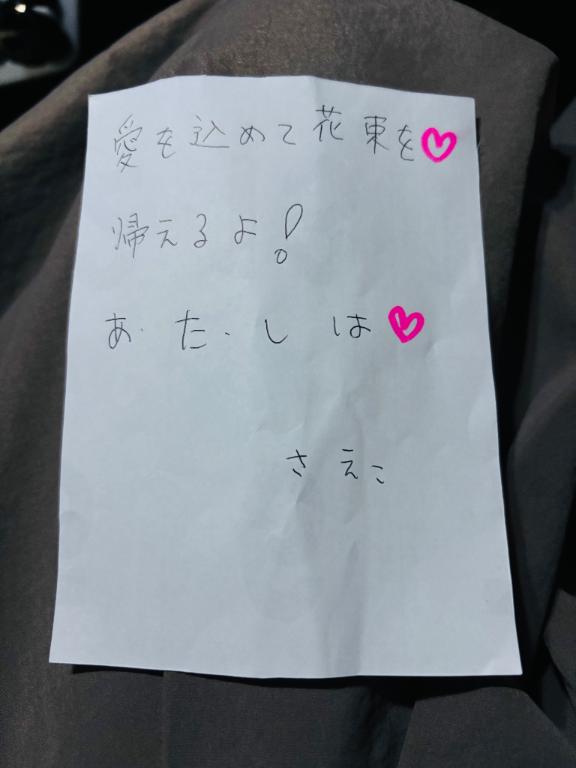 愛を込めて花束を♡
帰えるよ!
あ・た・しは♡
さえこ